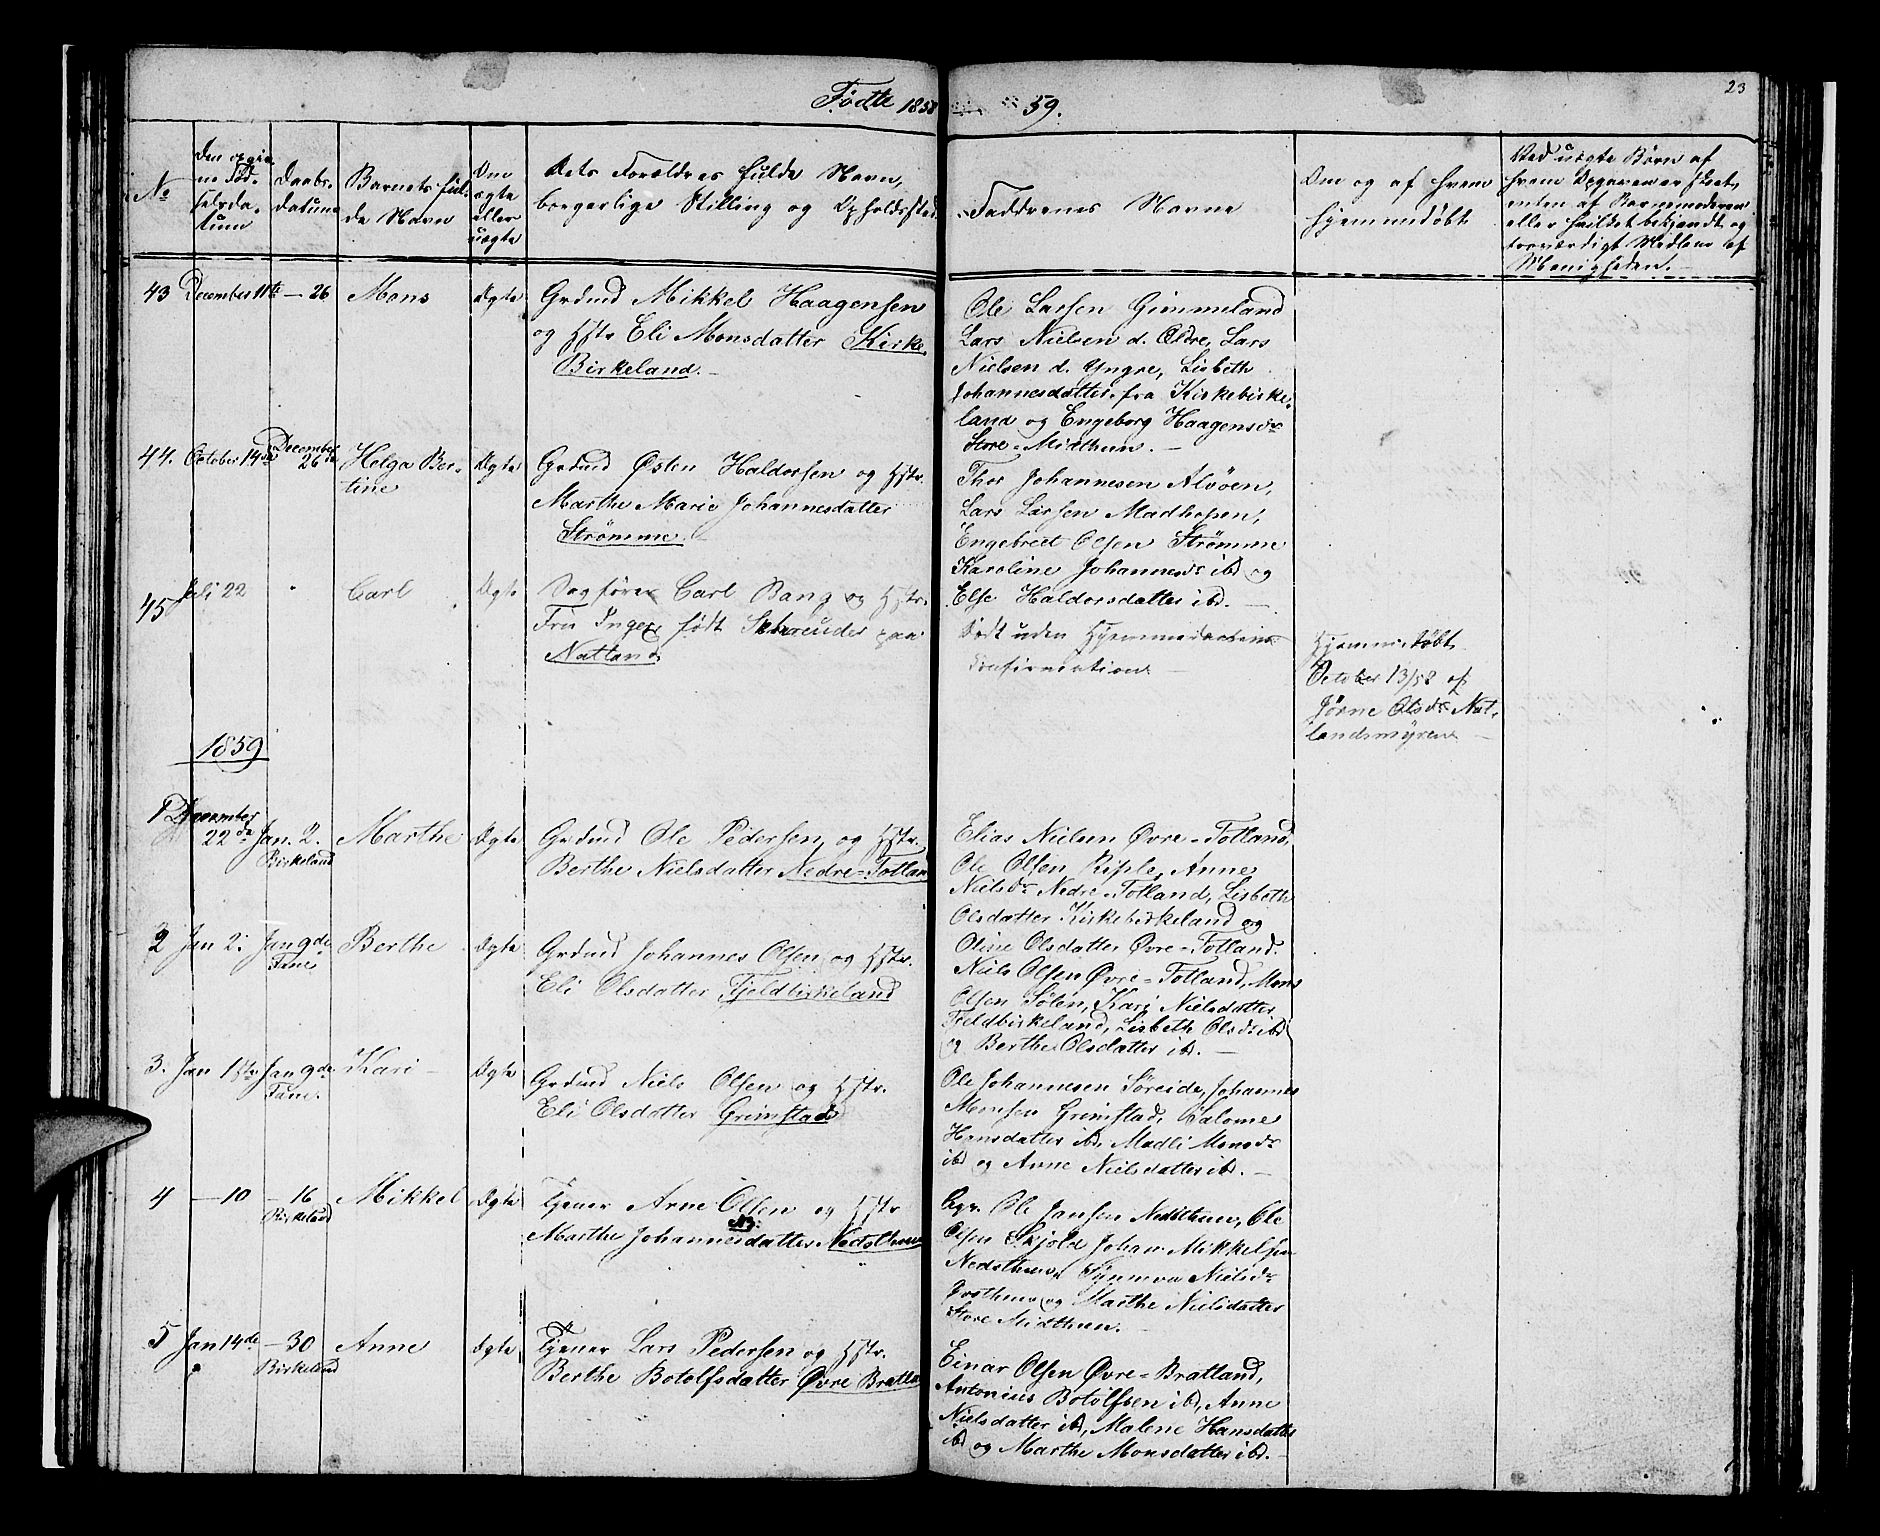 23
Født 1858 59.
No
Den opgiv-
ne Fød-
selsda-
tum
Daabs-
datum
Barnets ful-
de Navn
Om
ægte
eller
uægte
Dets Forældres fulde Navn,
borgerlige Stilling og Opholdssted
Faddrenes Navne
Om og af hvem
hjemmedøbt
Ved uægte Børn af
hvem Opgaven er skeet,
enten af Barnemoderen
eller hvilket bekjendt og
troværdigt Medlem af
Menigheden.
43 December 11te — 26 Mons Ægte Grdmd Mikkel Haagensen
og Hstr Eli Monsdatter Kirke
Birkeland.
Ole Larsen Gimmeland
Lars Nielsen d. Ældre, Lars
Nielsen d. Yngre, Lisbeth
Johannesdatter fra Kirkebirke-
land og Engeborg Haagensdr
Store-Midthun.
44. October 14de December 26de Helga Ber-
tine
Ægte Grdmd Østen Haldorsen og Hstr.
Marthe Marie Johannesdatter
Strømme.
Thor Johannesen Alvøen,
Lars Larsen Madhopen,
Engebrect Olsen Strømme
Karoline Johannesdr ibd og
Else Haldorsdatter ibd.
45 Juli 22 Carl Ægte Sagfører Carl Bang og Hstr.
Fru Inger født Schreuder paa
Natland
Født uden Hjemmedaabens
Confirmation
Hjemmedøbt
October 13/58 af
Jørne Olsdr Nat-
landsmyren
1859
1 December
22de Jan. 2. Marthe Ægte Grdmd Ole Pedersen og Hstr.
Birkeland
Berthe Nielsdatter Nedre-Totland
Elias Nielsen Øvre-Totland,
Ole Olsen Riple, Anne
Nielsdr Nedre-Totland, Lisbeth
Olsdatter Kirkebirkeland og
Oline Olsdatter Øvre-Totland.
2 Jan 2. Jan 9de Berthe Ægte Grdmd Johannes Olsen og Hstr.
Fane
Eli Olsdatter Fjeldbirkeland
Niels Olsen Øvre-Totland, Mons
Olsen Sølen, Kari Nielsdatter
Feldbirkeland, Lisbeth Olsdr ibd
og Berthe Olsdatter ibd.
3. Jan 1ste Jan 9de Kari Ægte Grdmd Niels Olsen og Hstr.
Fane.
Eli Olsdatter Grimstad
Ole Johannesen Søreide, Johannes
Monsen Grimstad, Salome
Hansdatter ibd, Madli Monsdr
ibd og Anne Nielsdatter ibd.
4 — 10 — 16 Mikkel Ægte Tjener Arne Olsen og Hstr
Birkeland
Marthe Johannesdatter Nedsthun
Ole Jansen Nedsthun, Ole
Olsen Skjold Johan Mikkelsen
Nedsthun, Synneva Nielsdr
og Marthe Nielsdatter
Store Midthun.
5 Jan 14de — 30 Anne Ægte Tjener Lars Pedersen og Hstr.
Birkeland
Berthe Botolfsdatter Øvre Bratland
Einar Olsen Øvre-Bratland,
Antonius Botolfsen ibd, Anne
Nielsdatter ibd, Malene Hansdatter
ibd og Marthe Monsdatter ibd.